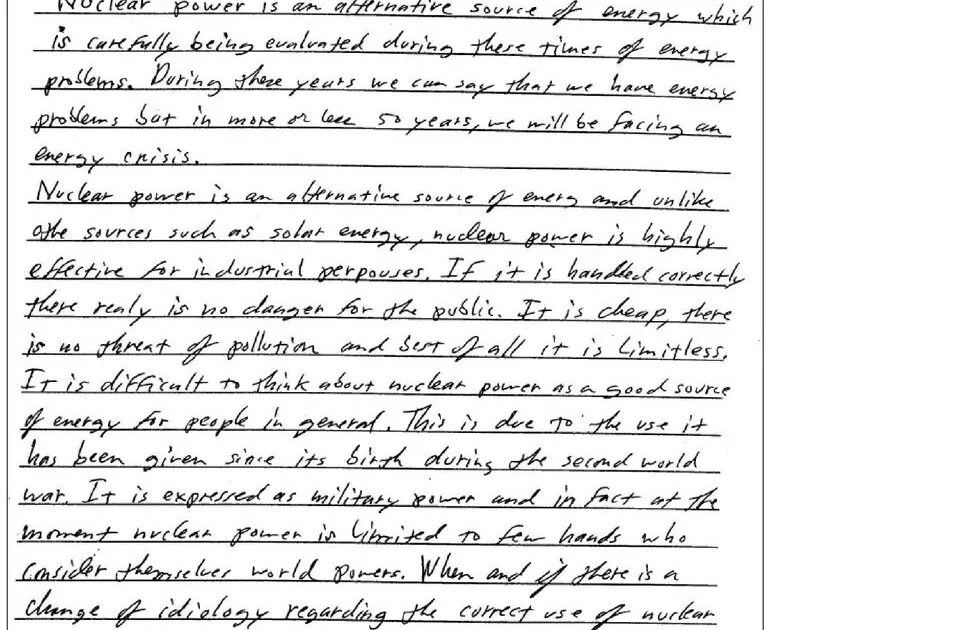 Nuclear power is an alternative source of energy which
is carefully being evaluated during these times of energy
problems. During these years we can say that we have energy
problems but in more or less 50 years, we will be facing an
energy crisis.
Nuclear power is an alternative source of energ and unlike
othe sources such as solar energy, nuclear power is highly
effective for industrial perpouses. If it is handled correctly
there realy is no danger for the public. It is cheap, there
is no threat of pollution and best of all it is limitless.
It is difficult to think about nuclear power as a good source
of energy for people in general. This is due to the use it
has been given since its birth during the second world
war. It is expressed as military power and in fact at the
moment nuclear power is limited to few hands who
consider themselves world powers. When and if there is a
change of idiology regarding the correct use of nuclear